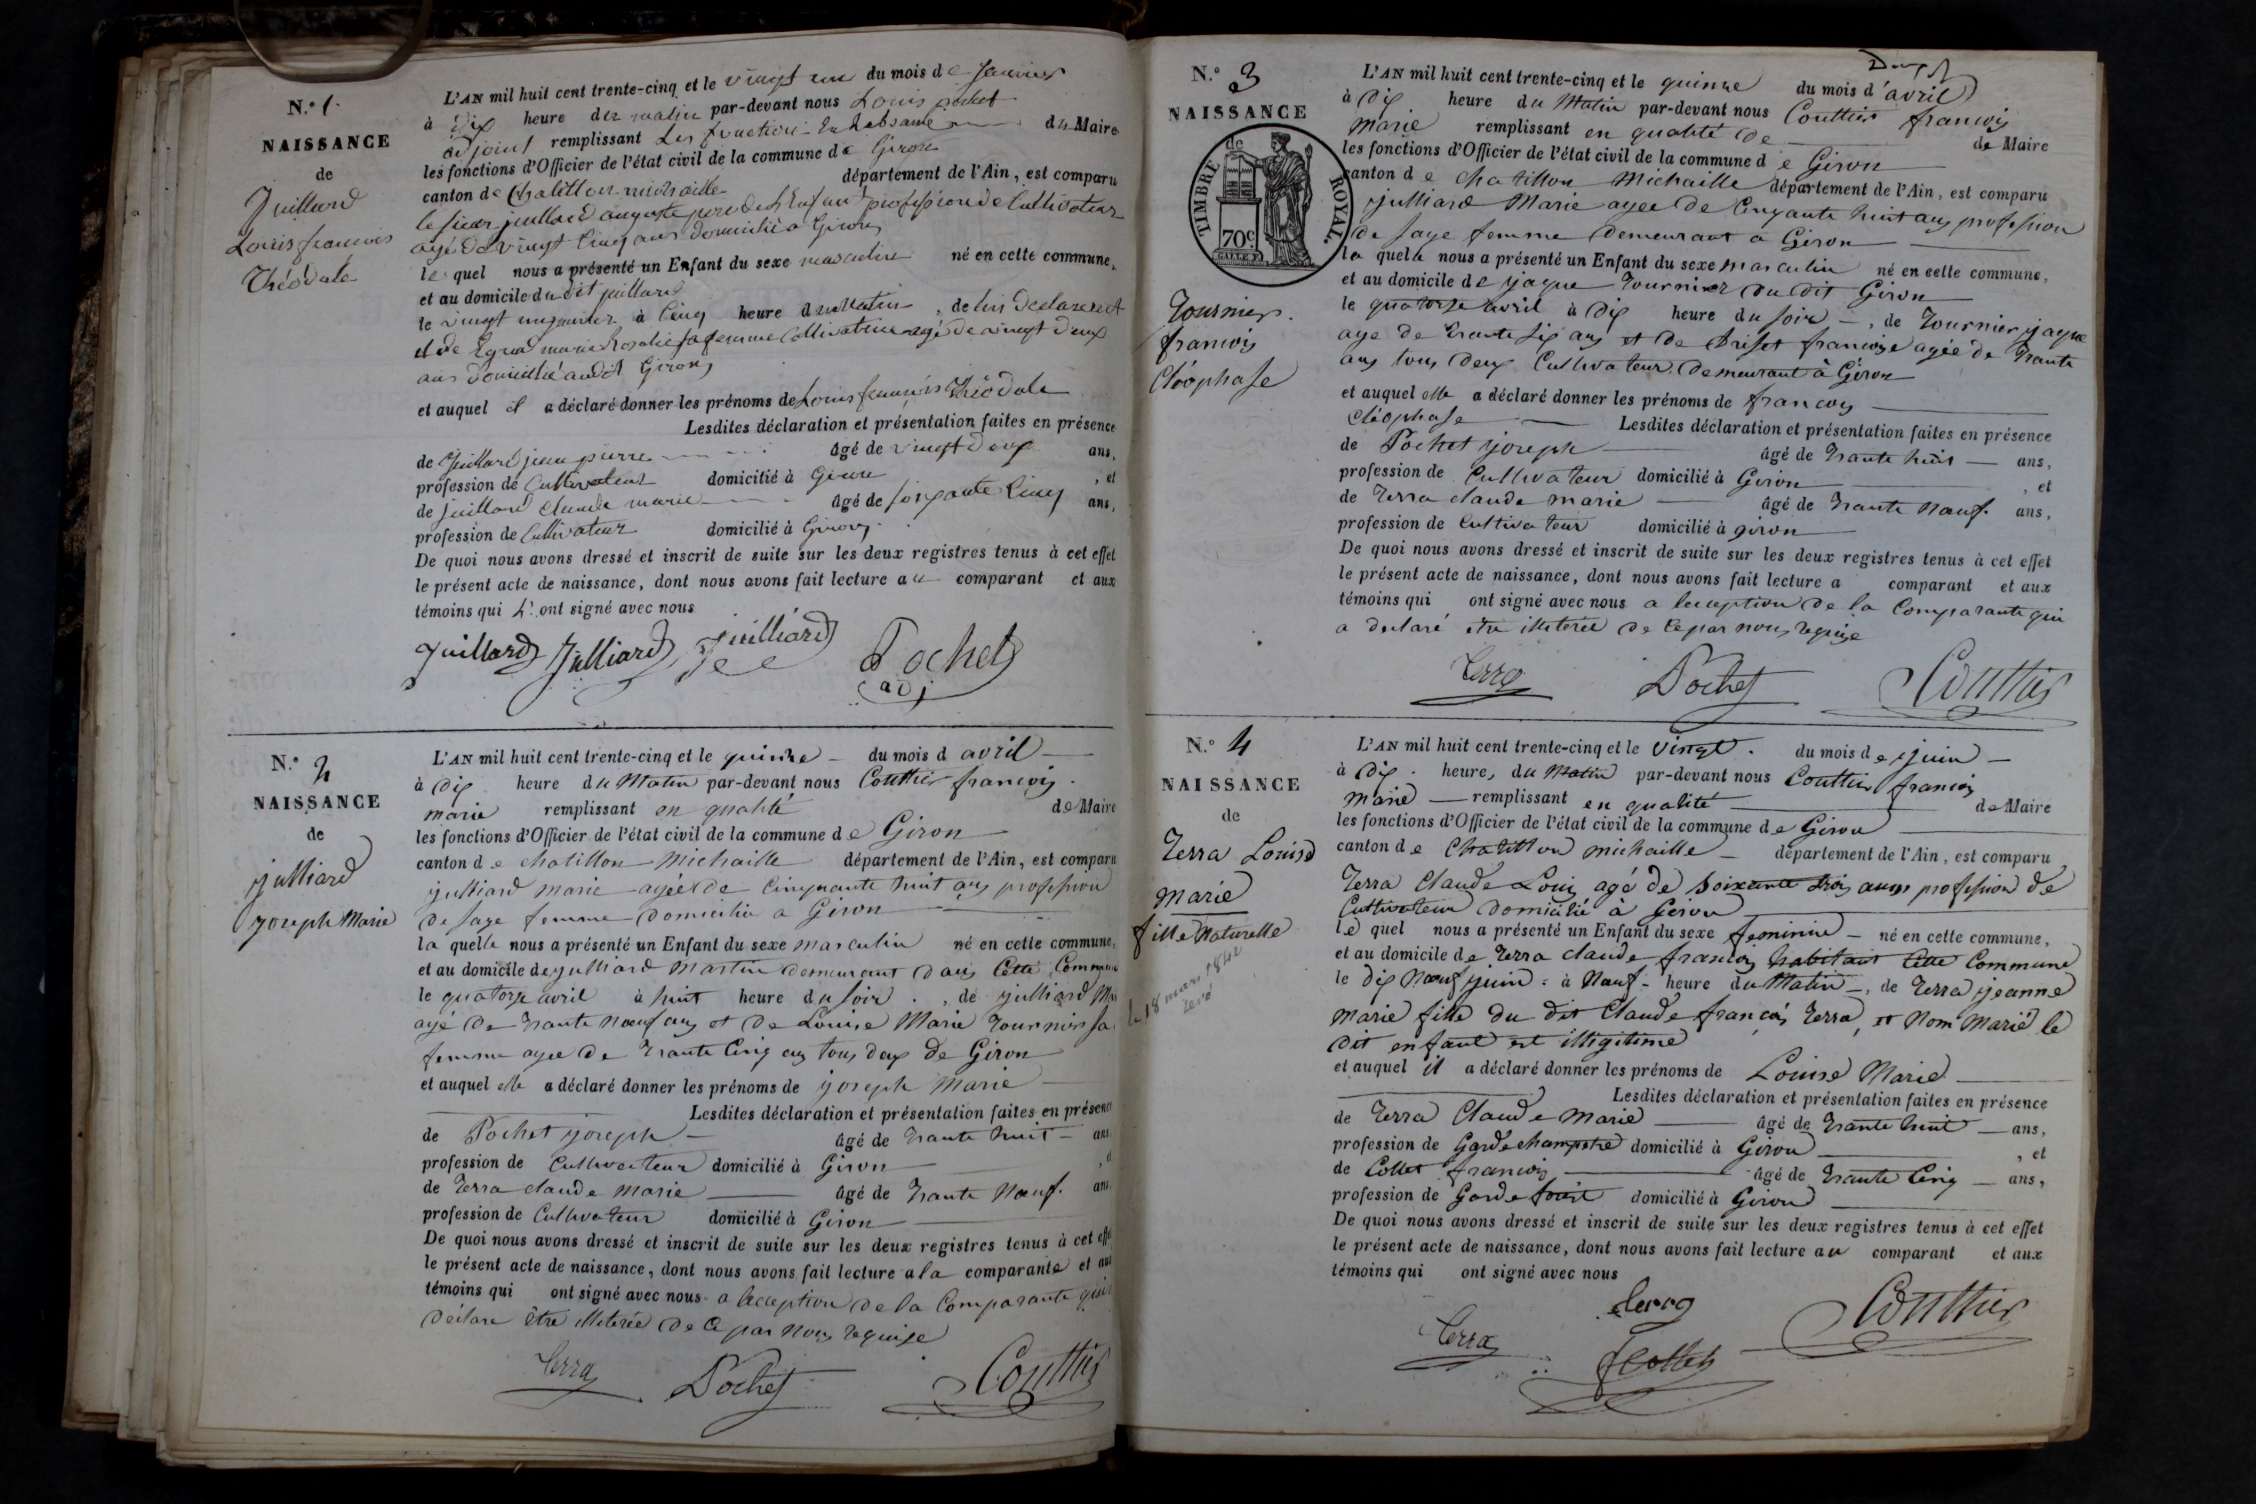 N.º 1.
NAISSANCE
de
Juillard
Louis françois
Théodule
L'AN mil huit cent trente-cinq et le vingt un du mois de Janvier
à dix heure du matin par-devant nous Louis pochet
adjoint remplissant les fonctions En Labsance du Maire
les fonctions d'Officier de l'état civil de la commune de Giron
canton de Chatillon michaille département de l'Ain, est comparu
le sieur juillard auguste pere de l'Enfant profession de Cultivateur
agé de vingt Cinq ans domicilié a Giron
le quel nous a présenté un Enfant du sexe masculin né en cette commune,
et au domicile du dit juillard
le vingt un janvier à Cinq heure du Matin, de lui Declarent
et de marie Rosalie sa femme Cultivatrice agé de vingt deux
ans domicilié audit Giron
et auquel il a déclaré donner les prénoms de Louis françois Théodule
Lesdites déclaration et présentation faites en présence
de Juillard jean pierre âgé de vingt deux ans,
profession de Cultivateur domicilié à Giron, et
de juillard claude marie âgé de soixante Cinq ans,
profession de Cultivateur domicilié à Giron.
De quoi nous avons dressé et inscrit de suite sur les deux registres tenus à cet effet
le présent acte de naissance, dont nous avons fait lecture au comparant et aux
témoins qui ont signé avec nous
Juillard Julliard Juilliard Pochet
adj
N.º 2
NAISSANCE
de
julliard
joseph Marie
L'AN mil huit cent trente-cinq et le quinze du mois d avril
à dix heure du Matin par-devant nous Couttier francois
marie remplissant en qualité de Maire
les fonctions d'Officier de l'état civil de la commune de Giron
canton de chatillon Michaille département de l'Ain, est comparu
julliard marie agée de Cinquante huit ans profession
de sage femme domicilie a Giron
la quelle nous a présenté un Enfant du sexe masculin né en cette commune,
et au domicile de julliard Martin demeurant dans Cette Commune
le quatorze avril à huit heure du soir, de julliard
agé de trante nœuf ans et de Louise Marie Tournier sa
femme agee de trante Cinq ans tous deux de Giron
et auquel elle a déclaré donner les prénoms de joseph Marie
Lesdites déclaration et présentation faites en présence
de Pochet joseph âgé de trante huit ans
profession de Cultivateur domicilié à Giron
de Terra claude Marie âgé de trante Nœuf. ans
profession de Cultivateur domicilié à Giron
De quoi nous avons dressé et inscrit de suite sur les deux registres tenus à cet effet
le présent acte de naissance, dont nous avons fait lecture a la comparante et aux
témoins qui ont signé avec nous a lexception de la Comparante qui
déclare être illiterée de ce par nous requise
Terra Pochet Couttier
N.º 3
NAISSANCE
de
TIMBRE ROYAL.
70c
Tournier.
francois
Cléophase
L'AN mil huit cent trente-cinq et le quinze du mois d'avril
à dix heure du Matin par-devant nous Couttier francois
Marie remplissant en qualité de de Maire
les fonctions d'Officier de l'état civil de la commune de Giron
canton de chatillon Michaille département de l'Ain, est comparu
julliard Marie agee de Cinqante huit ans profession
de sage femme demeurant a Giron
la quelle nous a présenté un Enfant du sexe masculin né en cette commune,
et au domicile de jaque Tournier du dit Giron
le quatorze avril à dix heure du soir, de Tournier jaque
age de trante six ans et de françoise agée de trante
ans tous deux Cultivateur demeurant à Giron
et auquel elle a déclaré donner les prénoms de francois
Cléophase Lesdites déclaration et présentation faites en présence
de Pochet joseph âgé de trante huit ans,
profession de Cultivateur domicilié à Giron, et
de Terra claude marie âgé de trante Nœuf. ans,
profession de Cultivateur domicilié à giron
De quoi nous avons dressé et inscrit de suite sur les deux registres tenus à cet effet
le présent acte de naissance, dont nous avons fait lecture a comparant et aux
témoins qui ont signé avec nous a lexception de la Comparante qui
a declaré etre illiterée de ce par nous requise
Terra Pochet Couttier
N.º 4
NAISSANCE
de
Terra Louise
Marie
fille Naturelle
le 18 mars 1842
L'AN mil huit cent trente-cinq et le vingt. du mois de juin
à dix. heure, du Matin par-devant nous Couttier francois
Marie remplissant en qualité de Maire
les fonctions d'Officier de l'état civil de la commune de Giron
canton de Chatillon michaille département de l'Ain, est comparu
Terra Claude Louis agé de soixante trois anns profession de
Cultivateur domicilié à Giron
le quel nous a présenté un Enfant du sexe feminine né en cette commune,
et au domicile de Terra claude francois habitant Cette Commune
le dix Nœuf juin à Nœuf heure du Matin, de Terra jeanne
Marie fille du dit Claude françois Terra, et Nom Marié le
dit enfant est illigitime
et auquel il a déclaré donner les prénoms de Louise Marie
Lesdites déclaration et présentation faites en présence
de Terra Claude Marie âgé de trante huit ans,
profession de Garde champetre domicilié à Giron, et
de Collet francois âgé de trante Cinq ans,
profession de Garde forêt domicilié à Giron
De quoi nous avons dressé et inscrit de suite sur les deux registres tenus à cet effet
le présent acte de naissance, dont nous avons fait lecture au comparant et aux
témoins qui ont signé avec nous
Terra Couttier
Terra fCollet